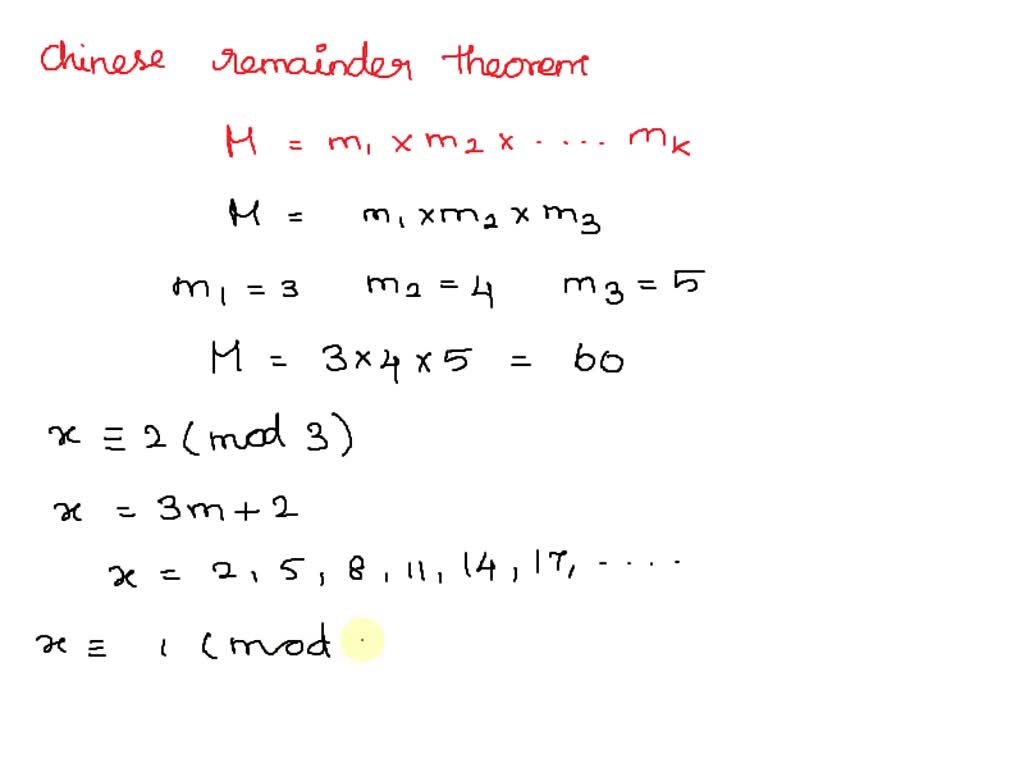 Chinese remainder theorem
M = m₁ × m₂ × ..... mₖ
M = m₁ × m₂ × m₃
m₁ = 3 m₂ = 4 m₃ = 5
M = 3 × 4 × 5 = 60
x ≡ 2 (mod 3)
x = 3m + 2
x = 2, 5, 8, 11, 14, 17, .....
x ≡ 1 (mod